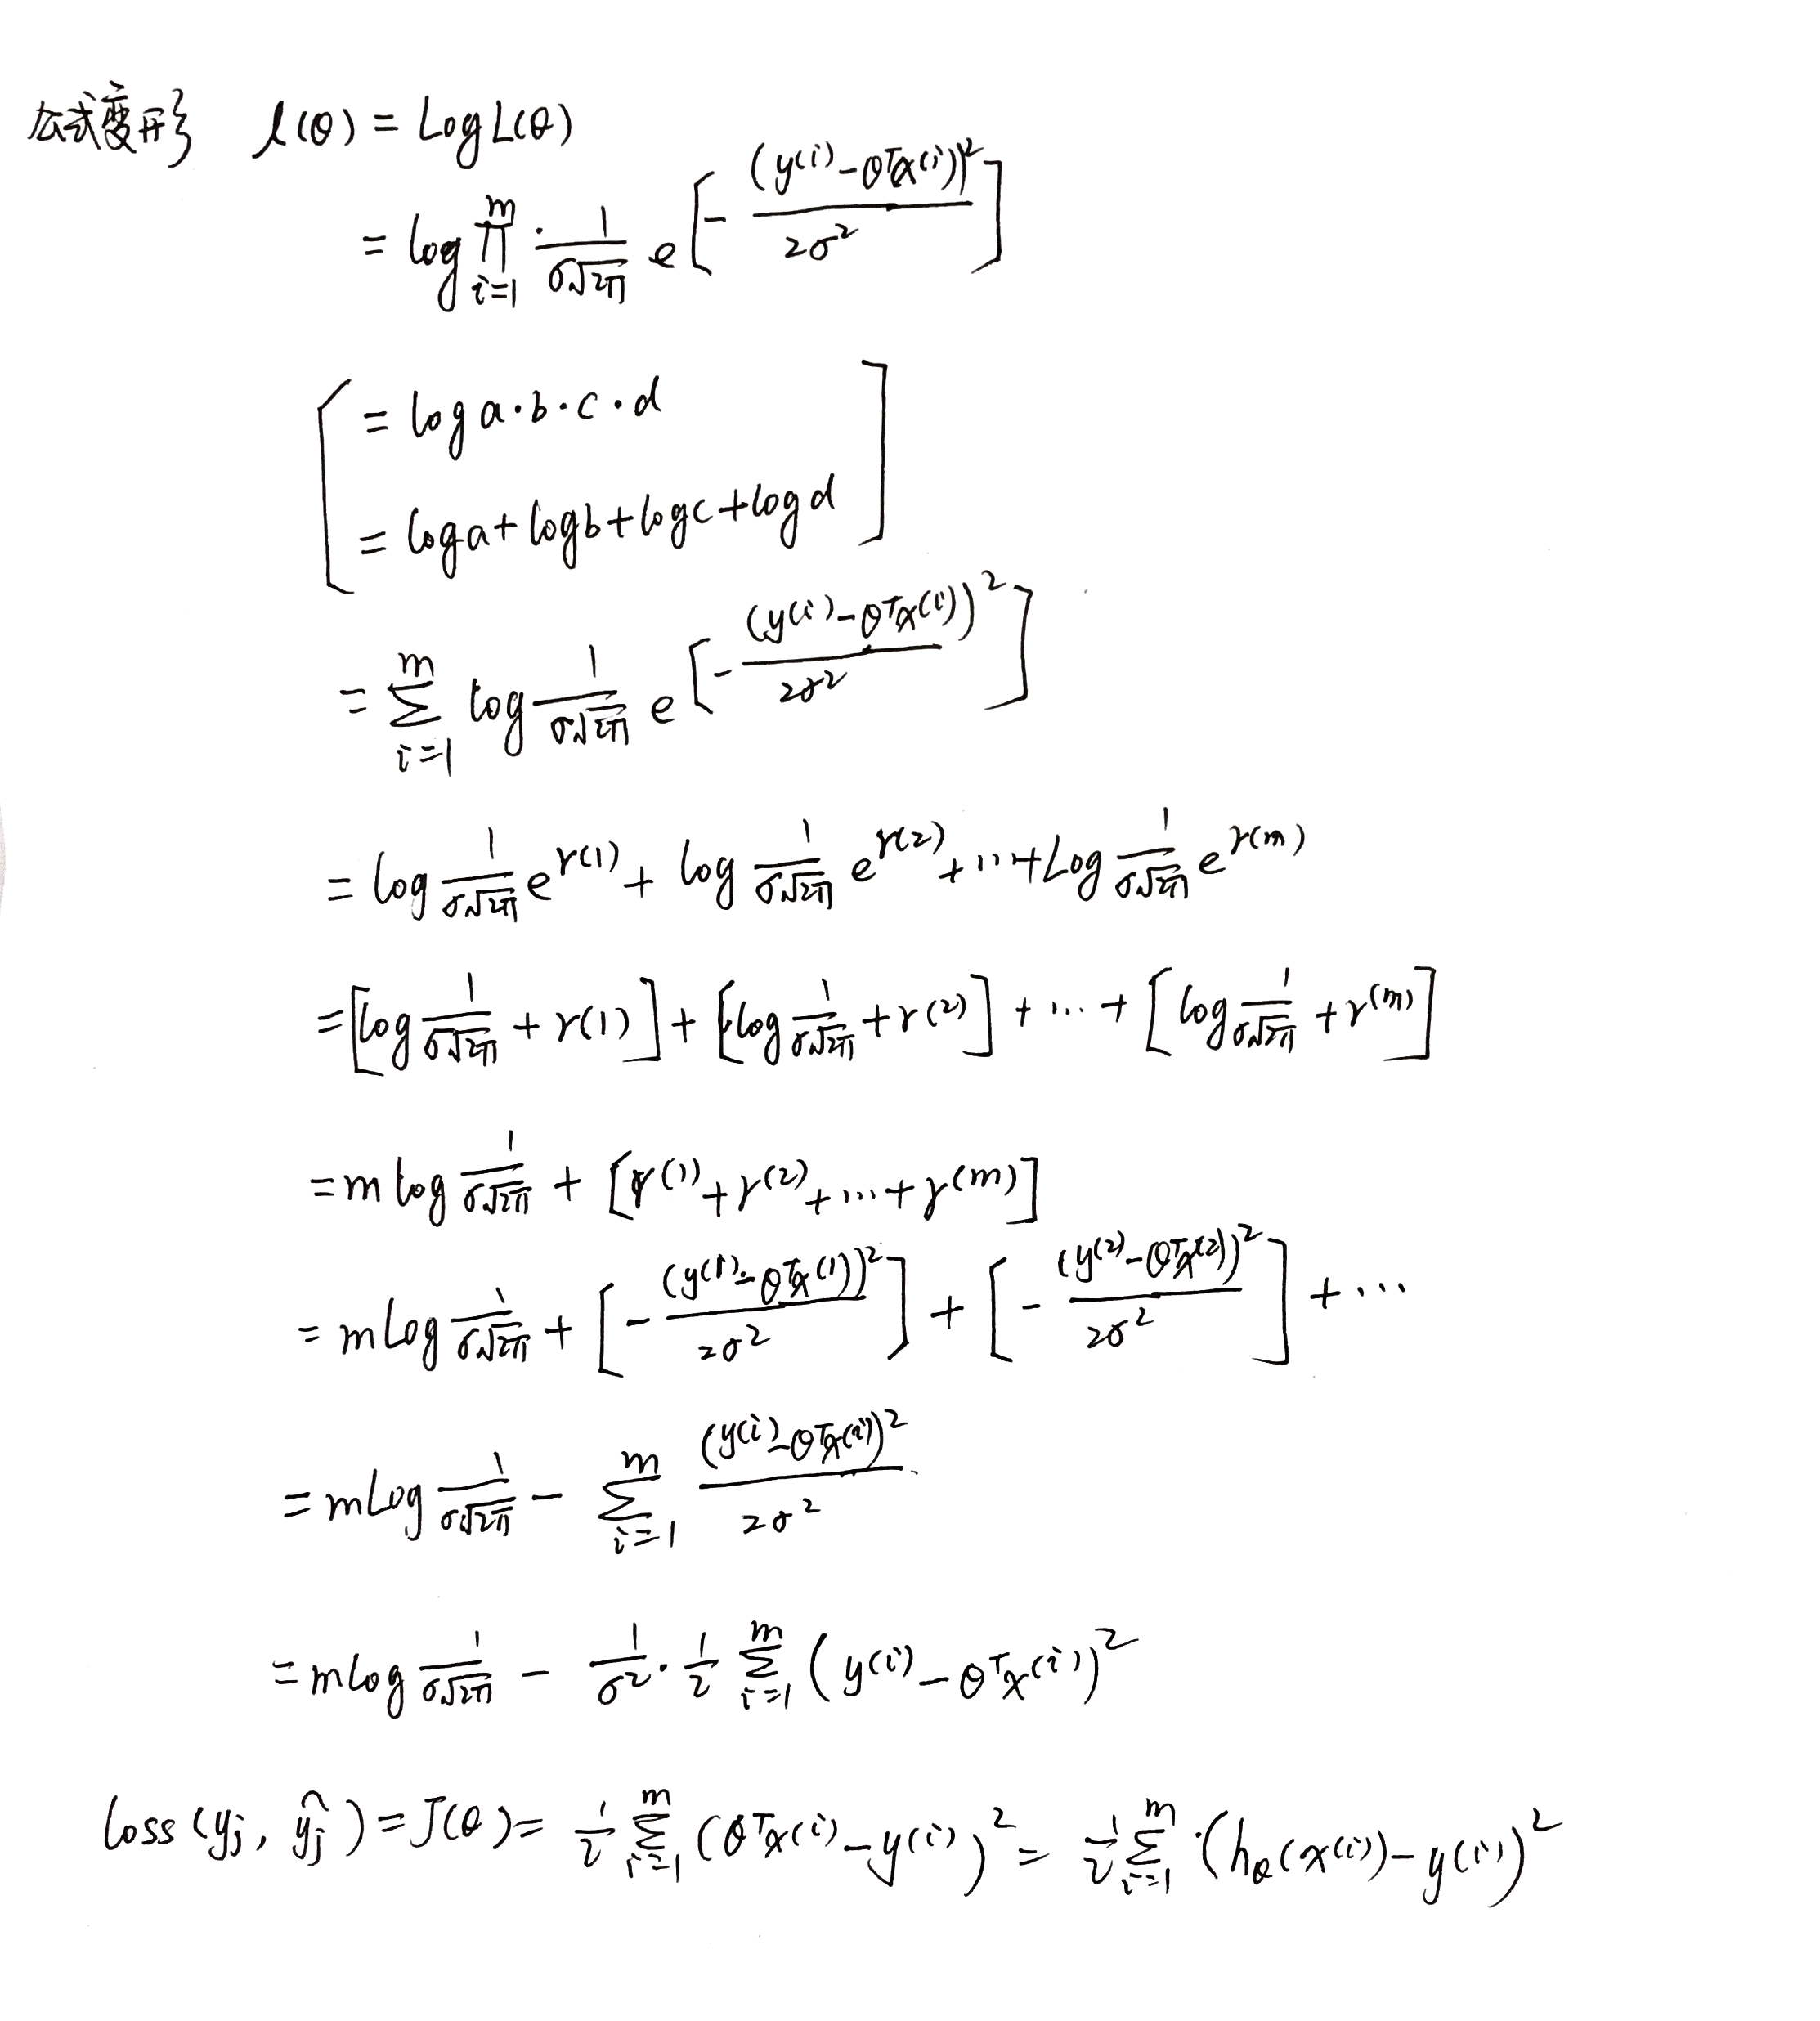 公式变形 l(θ) = Log L(θ)
= log ∏_{i=1}^{m} · \frac{1}{σ√2π} e[-\frac{(y(i)-θ^Tx(i))^2}{2σ^2}]
[= log a·b·c·d
= log a + log b + log c + log d]
= ∑_{i=1}^{m} log \frac{1}{σ√2π} e[-\frac{(y(i)-θ^Tx(i))^2}{2σ^2}]
= log \frac{1}{σ√2π} e^{r(1)} + log \frac{1}{σ√2π} e^{r(2)} + ... + Log \frac{1}{σ√2π} e^{r(m)}
= [log \frac{1}{σ√2π} + r(1)] + [log \frac{1}{σ√2π} + r(2)] + ... + [log \frac{1}{σ√2π} + r(m)]
= m log \frac{1}{σ√2π} + [r(1) + r(2) + ... + r(m)]
= m Log \frac{1}{σ√2π} + [-\frac{(y(1)-θ^Tx(1))^2}{2σ^2}] + [-\frac{(y(2)-θ^Tx(2))^2}{2σ^2}] + ...
= m Log \frac{1}{σ√2π} - ∑_{i=1}^{m} \frac{(y(i)-θ^Tx(i))^2}{2σ^2}
= m log \frac{1}{σ√2π} - \frac{1}{σ^2} · \frac{1}{2} ∑_{i=1}^{m} (y(i)-θ^Tx(i))^2
loss(y_j, ŷ_j) = J(θ) = \frac{1}{2} ∑_{i=1}^{m} (θ^Tx(i)-y(i))^2 = \frac{1}{2} ∑_{i=1}^{m} (h_θ(x(i))-y(i))^2